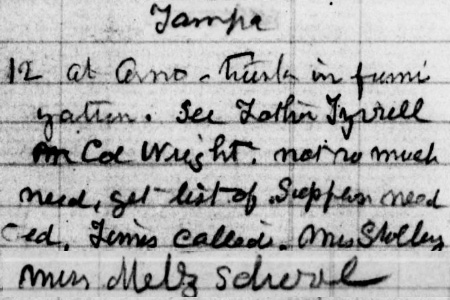 Tampa
12 at Arno - trunk in fumi
gation. See Father Tyrrell
Col Wright. not so much
need, get list of Supplies need
ed. Times called. Mrs Stolley
Miss Metz